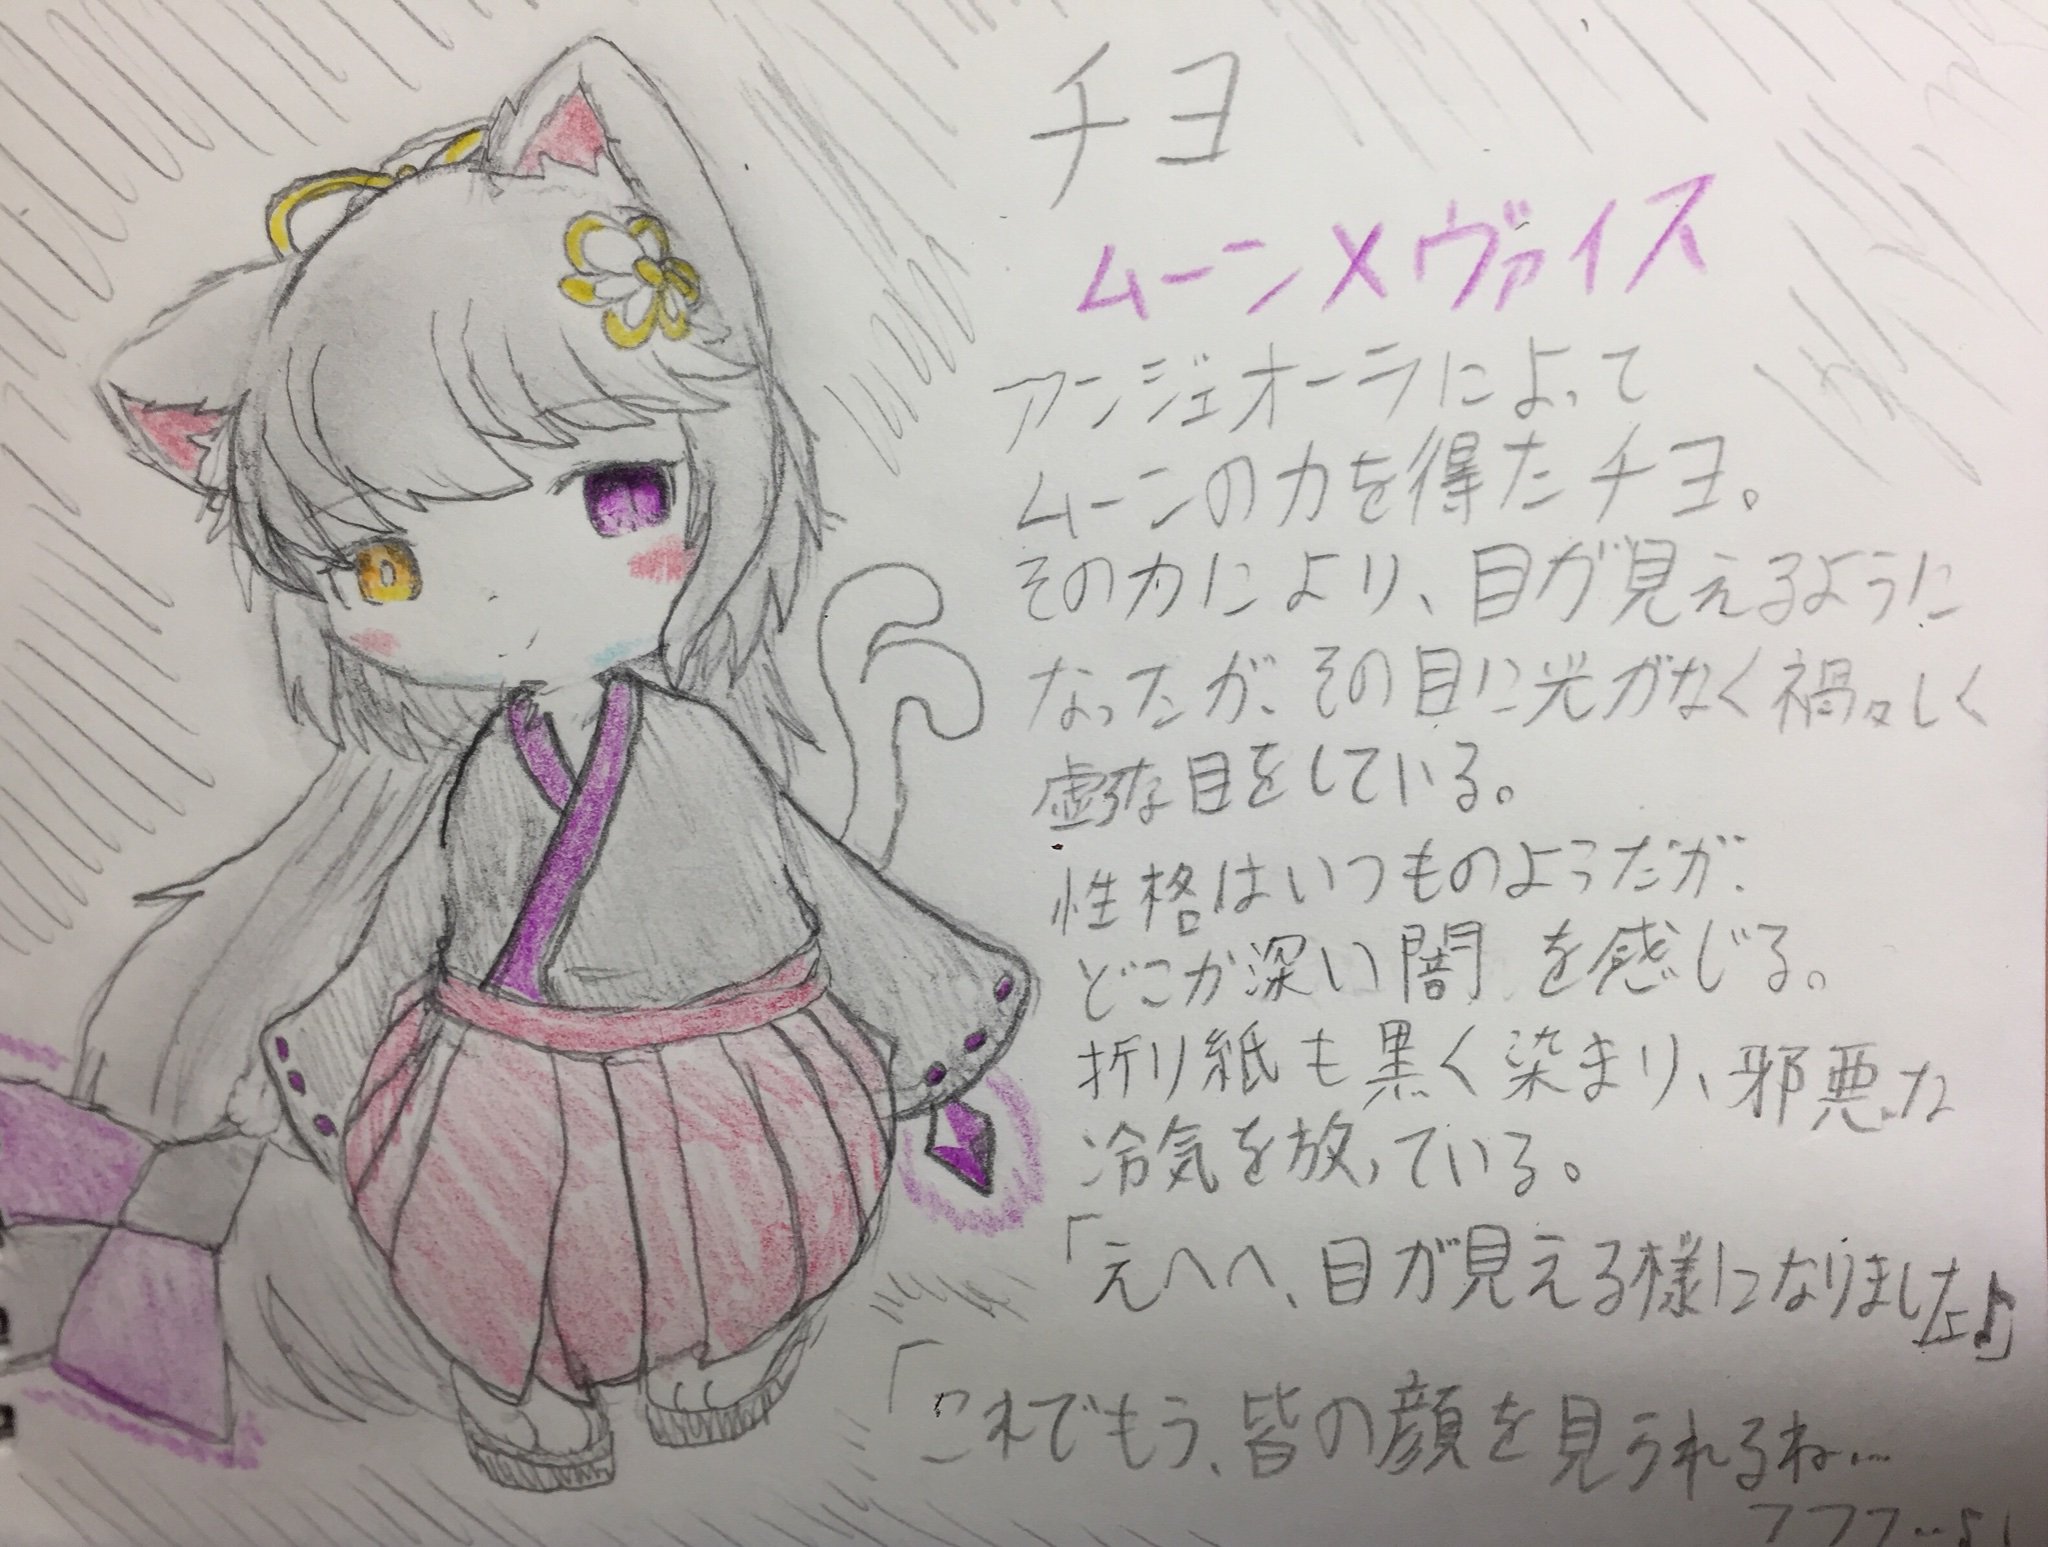 チヨ
ムーン×ヴァイス
アンジェオーラによって
ムーンの力を得たチヨ。
その力により、目が見えるように
なったが、その目に光がなく禍々しく
虚ろな目をしている。
性格はいつものようだが、
どこか深い闇を感じる。
折り紙も黒く染まり、邪悪な
冷気を放っている。
「えへへ、目が見える様になりました♪」
「これでもう、皆の顔を見られるね…
フフフ…♪」